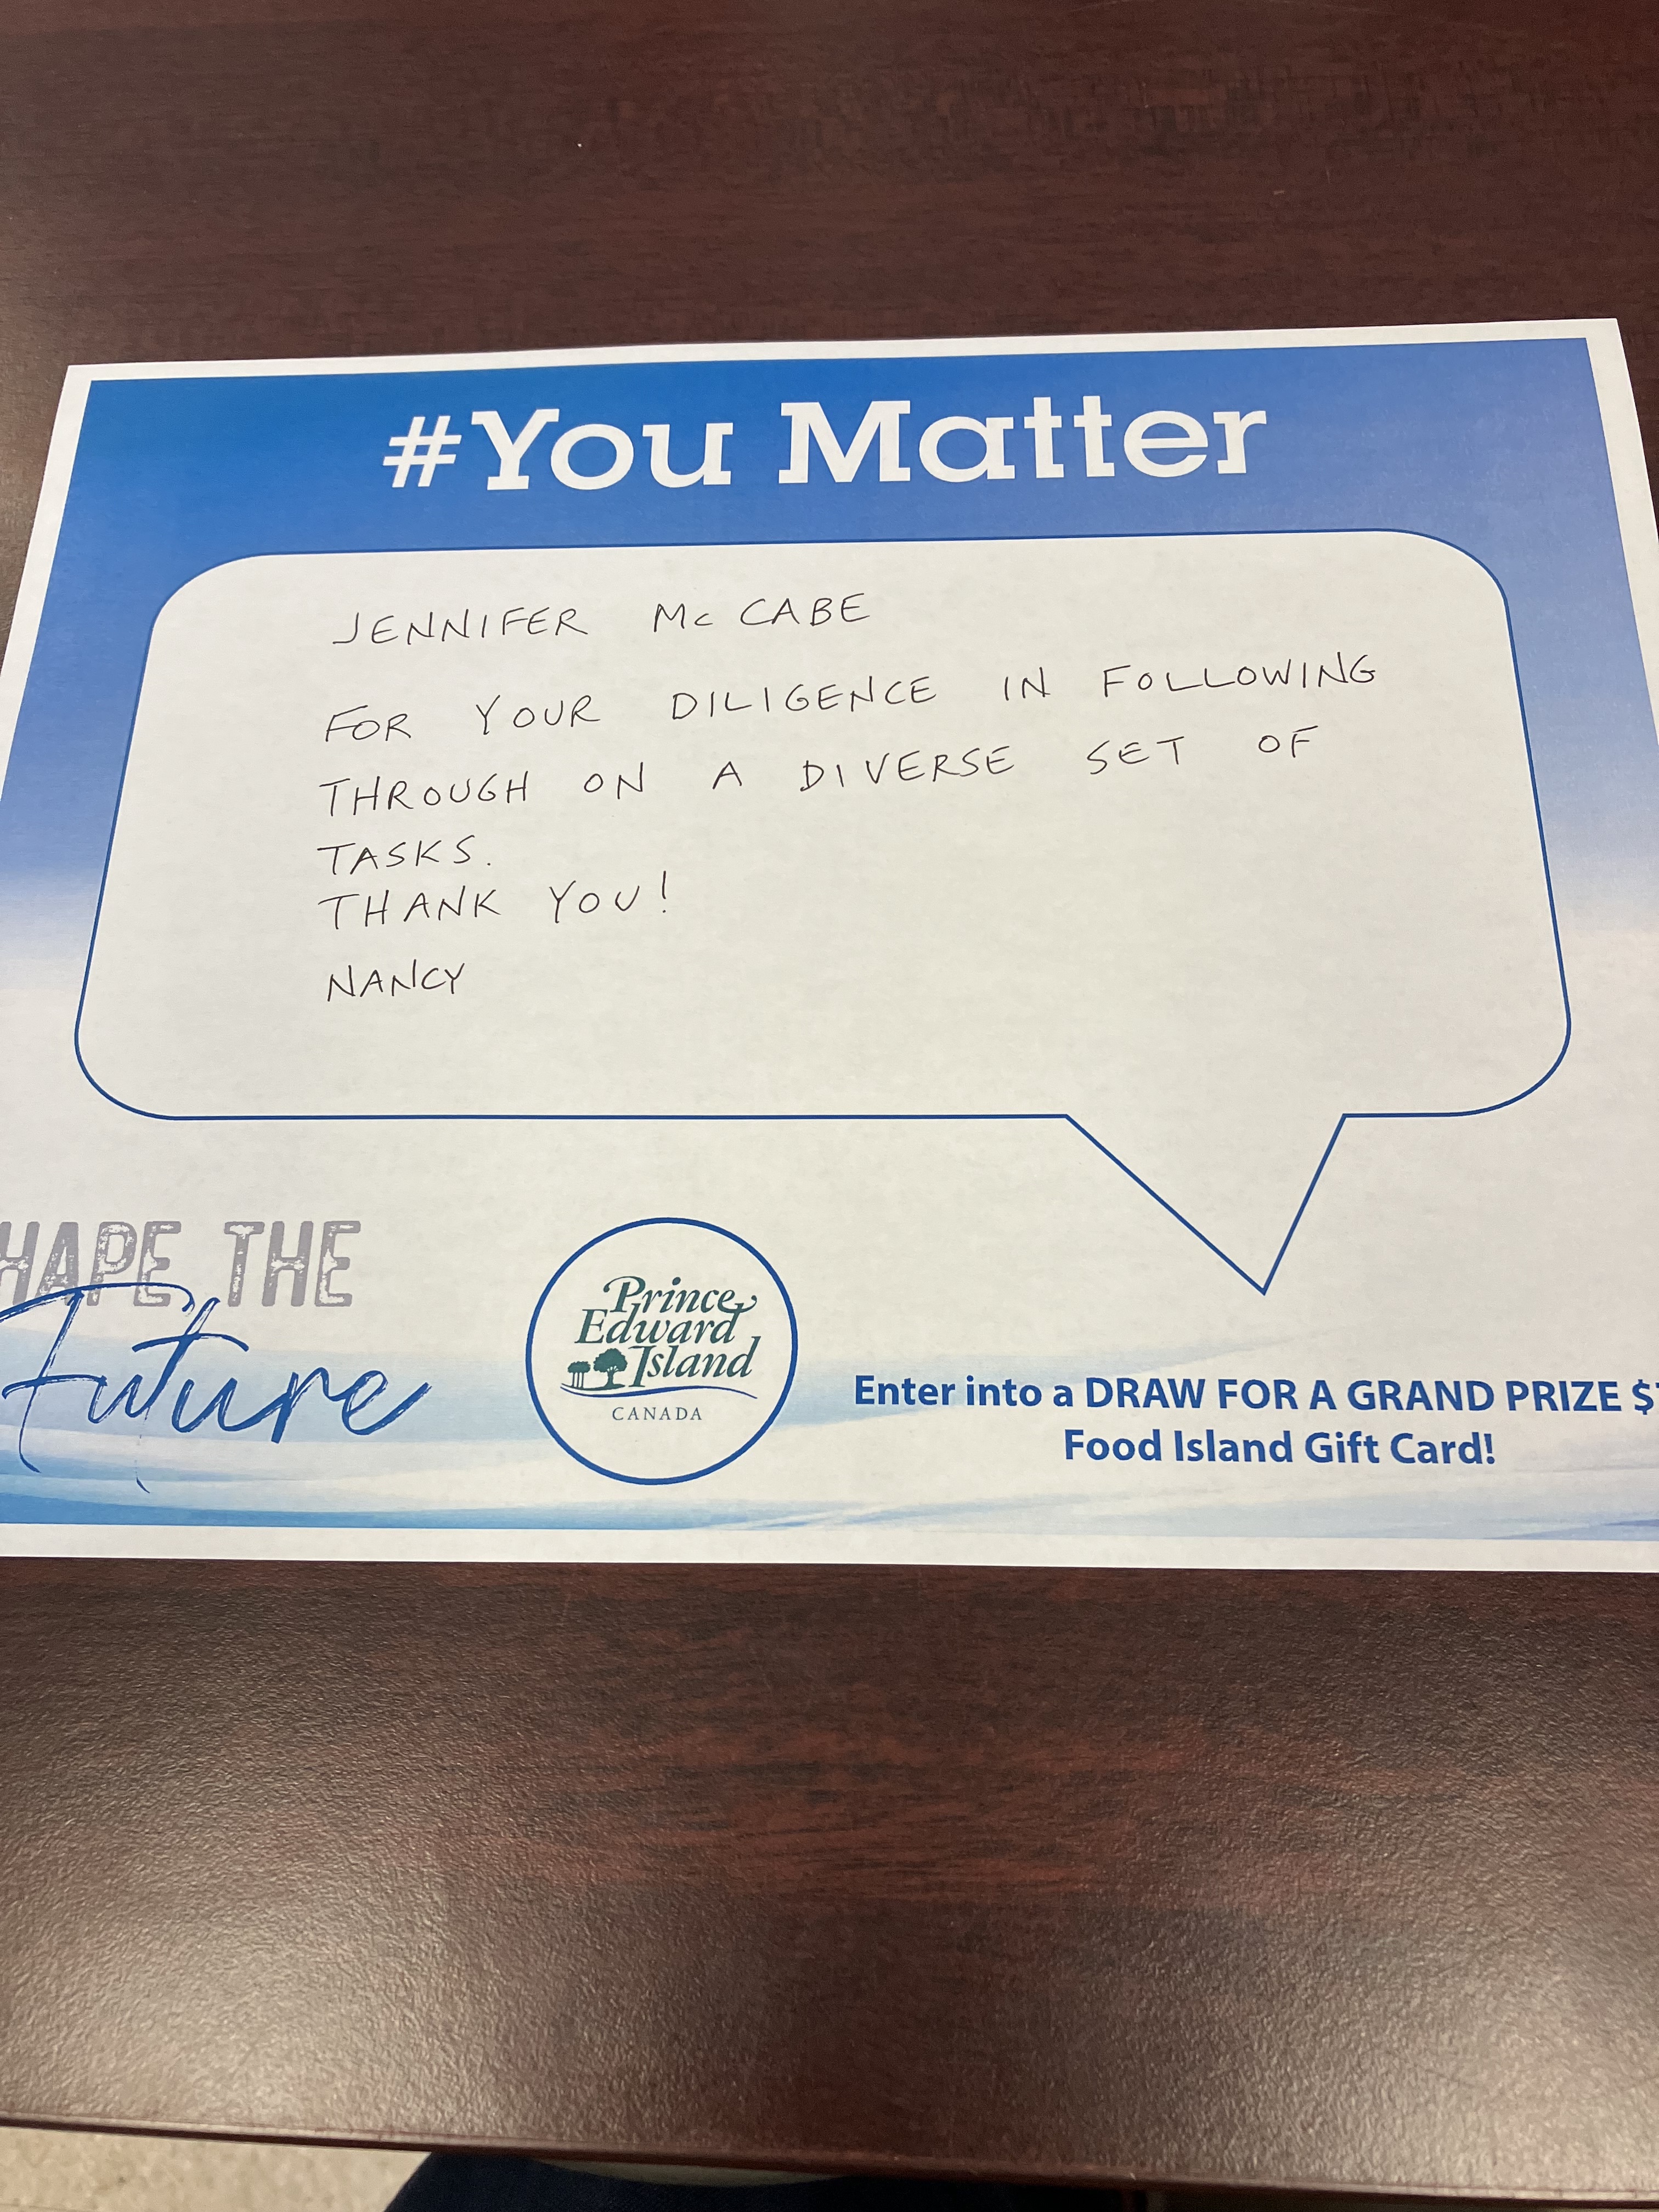 #You Matter
JENNIFER McCABE
FOR YOUR DILIGENCE IN FOLLOWING
THROUGH ON A DIVERSE SET OF
TASKS.
THANK YOU!
NANCY
HAPE THE
Future
Prince
Edward
Island
CANADA
Enter into a DRAW FOR A GRAND PRIZE $
Food Island Gift Card!